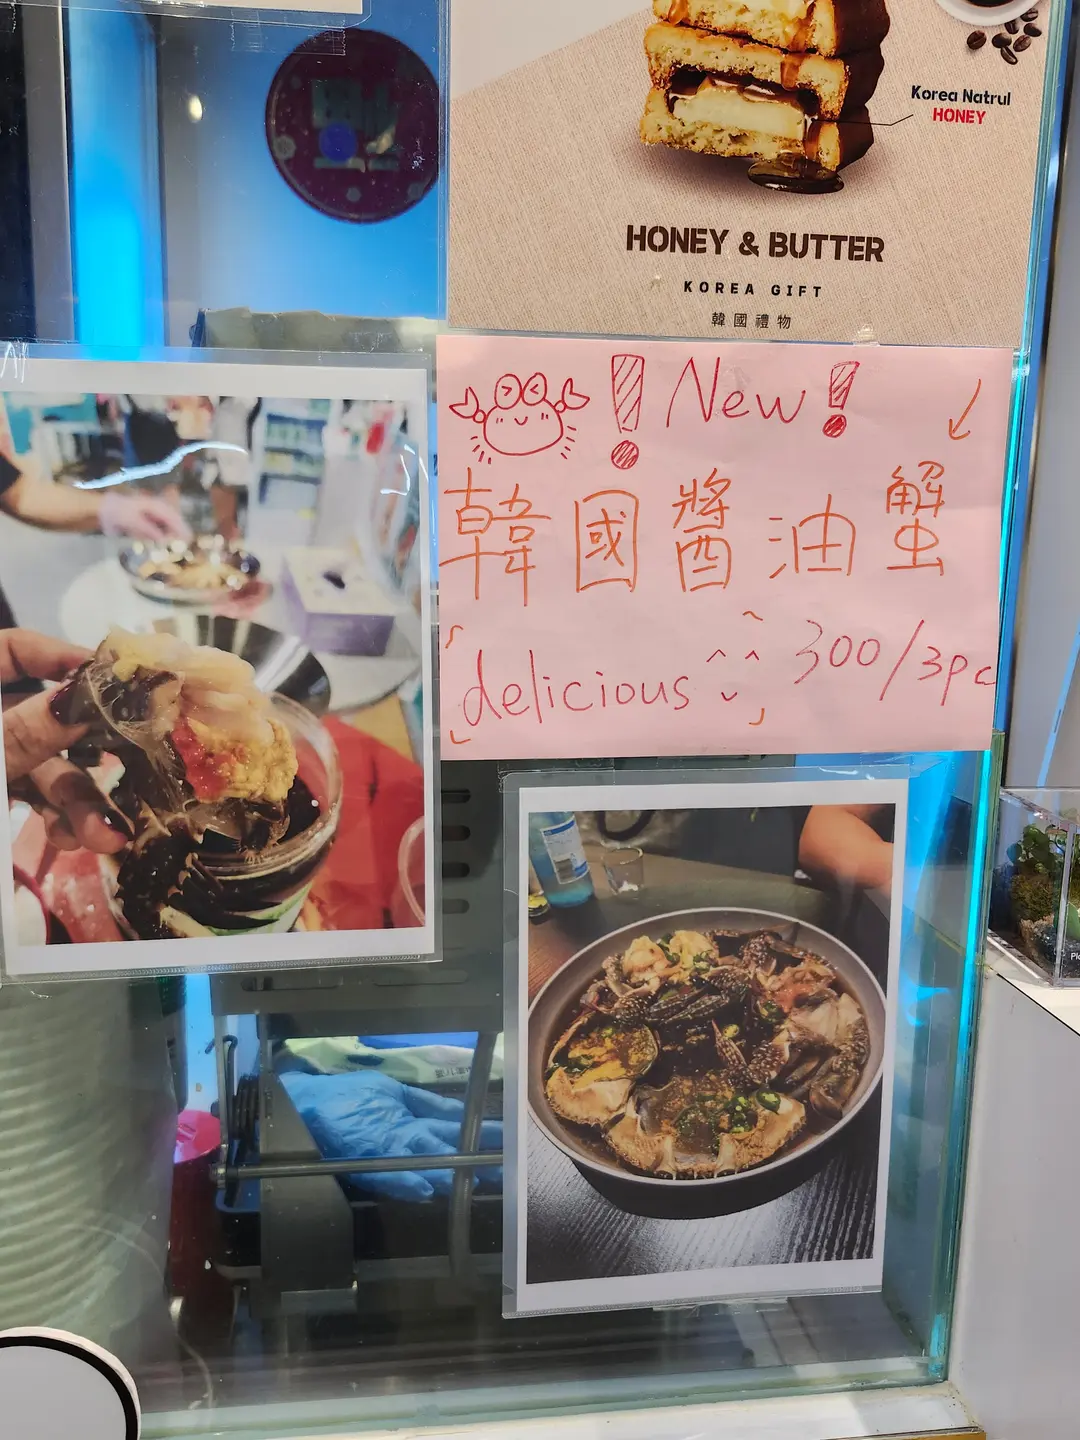 Korea Natrul
HONEY
HONEY & BUTTER
KOREA GIFT
韓國禮物
! New !
韓國醬油蟹
「delicious ^ ^」 300/3pc